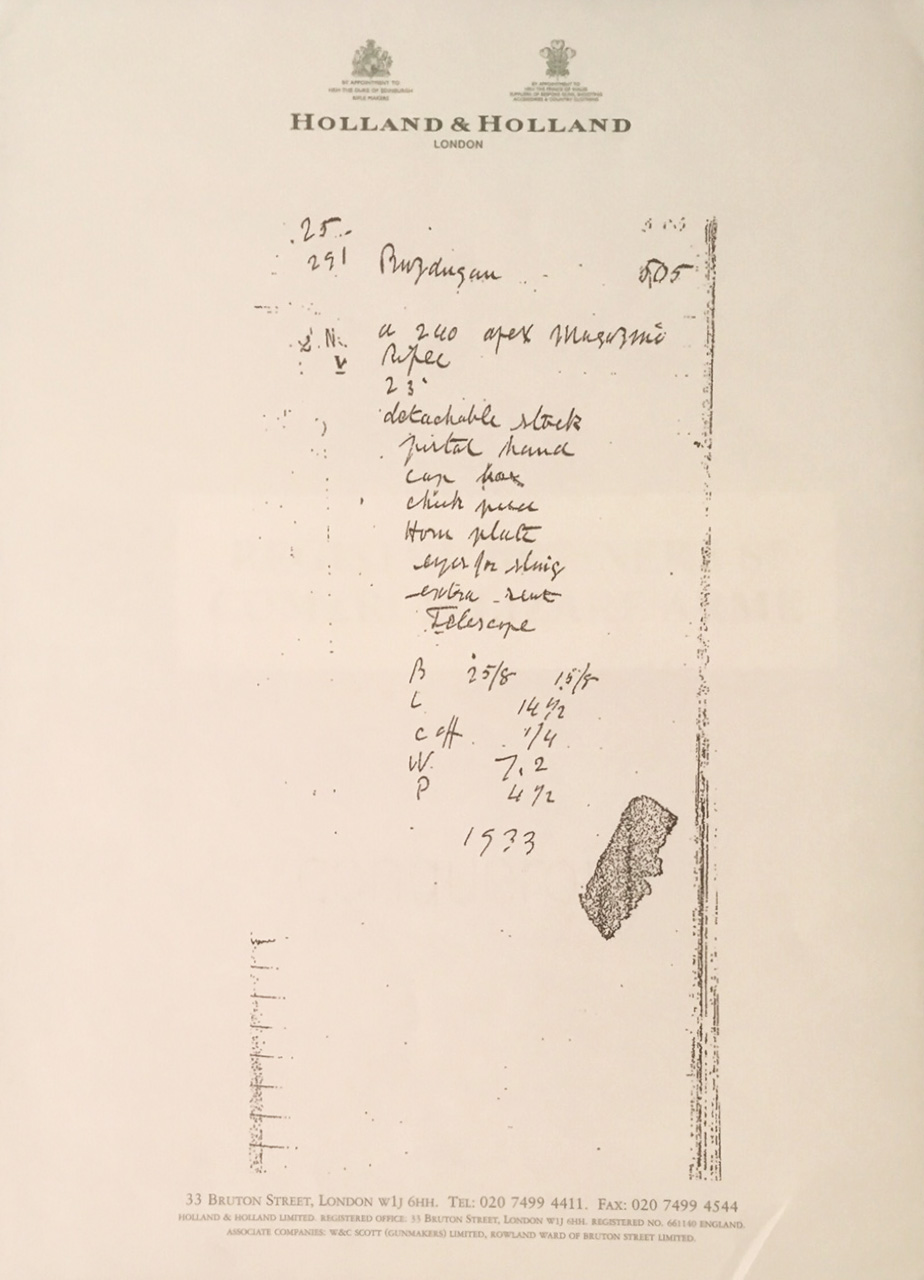 BY APPOINTMENT TO
HRH THE DUKE OF EDINBURGH
RIFLE MAKERS
BY APPOINTMENT TO
HRH THE PRINCE OF WALES
HOLLAND & HOLLAND
LONDON
.25.
291 Buzdugan 505
a 240 apex Magazine
Rifle
23"
detachable stock
pistol hand
cap box
cheek piece
Horn plate
eyes for sling
extra seat
Telescope
B 2 5/8 1 5/8
L 14 1/2
C off 1/4
W. 7.2
P 4 1/2
1933
33 BRUTON STREET, LONDON W1J 6HH. TEL: 020 7499 4411. FAX: 020 7499 4544
HOLLAND & HOLLAND LIMITED. REGISTERED OFFICE: 33 BRUTON STREET, LONDON W1J 6HH. REGISTERED NO. 661140 ENGLAND.
ASSOCIATE COMPANIES: W&C SCOTT (GUNMAKERS) LIMITED, ROWLAND WARD OF BRUTON STREET LIMITED.